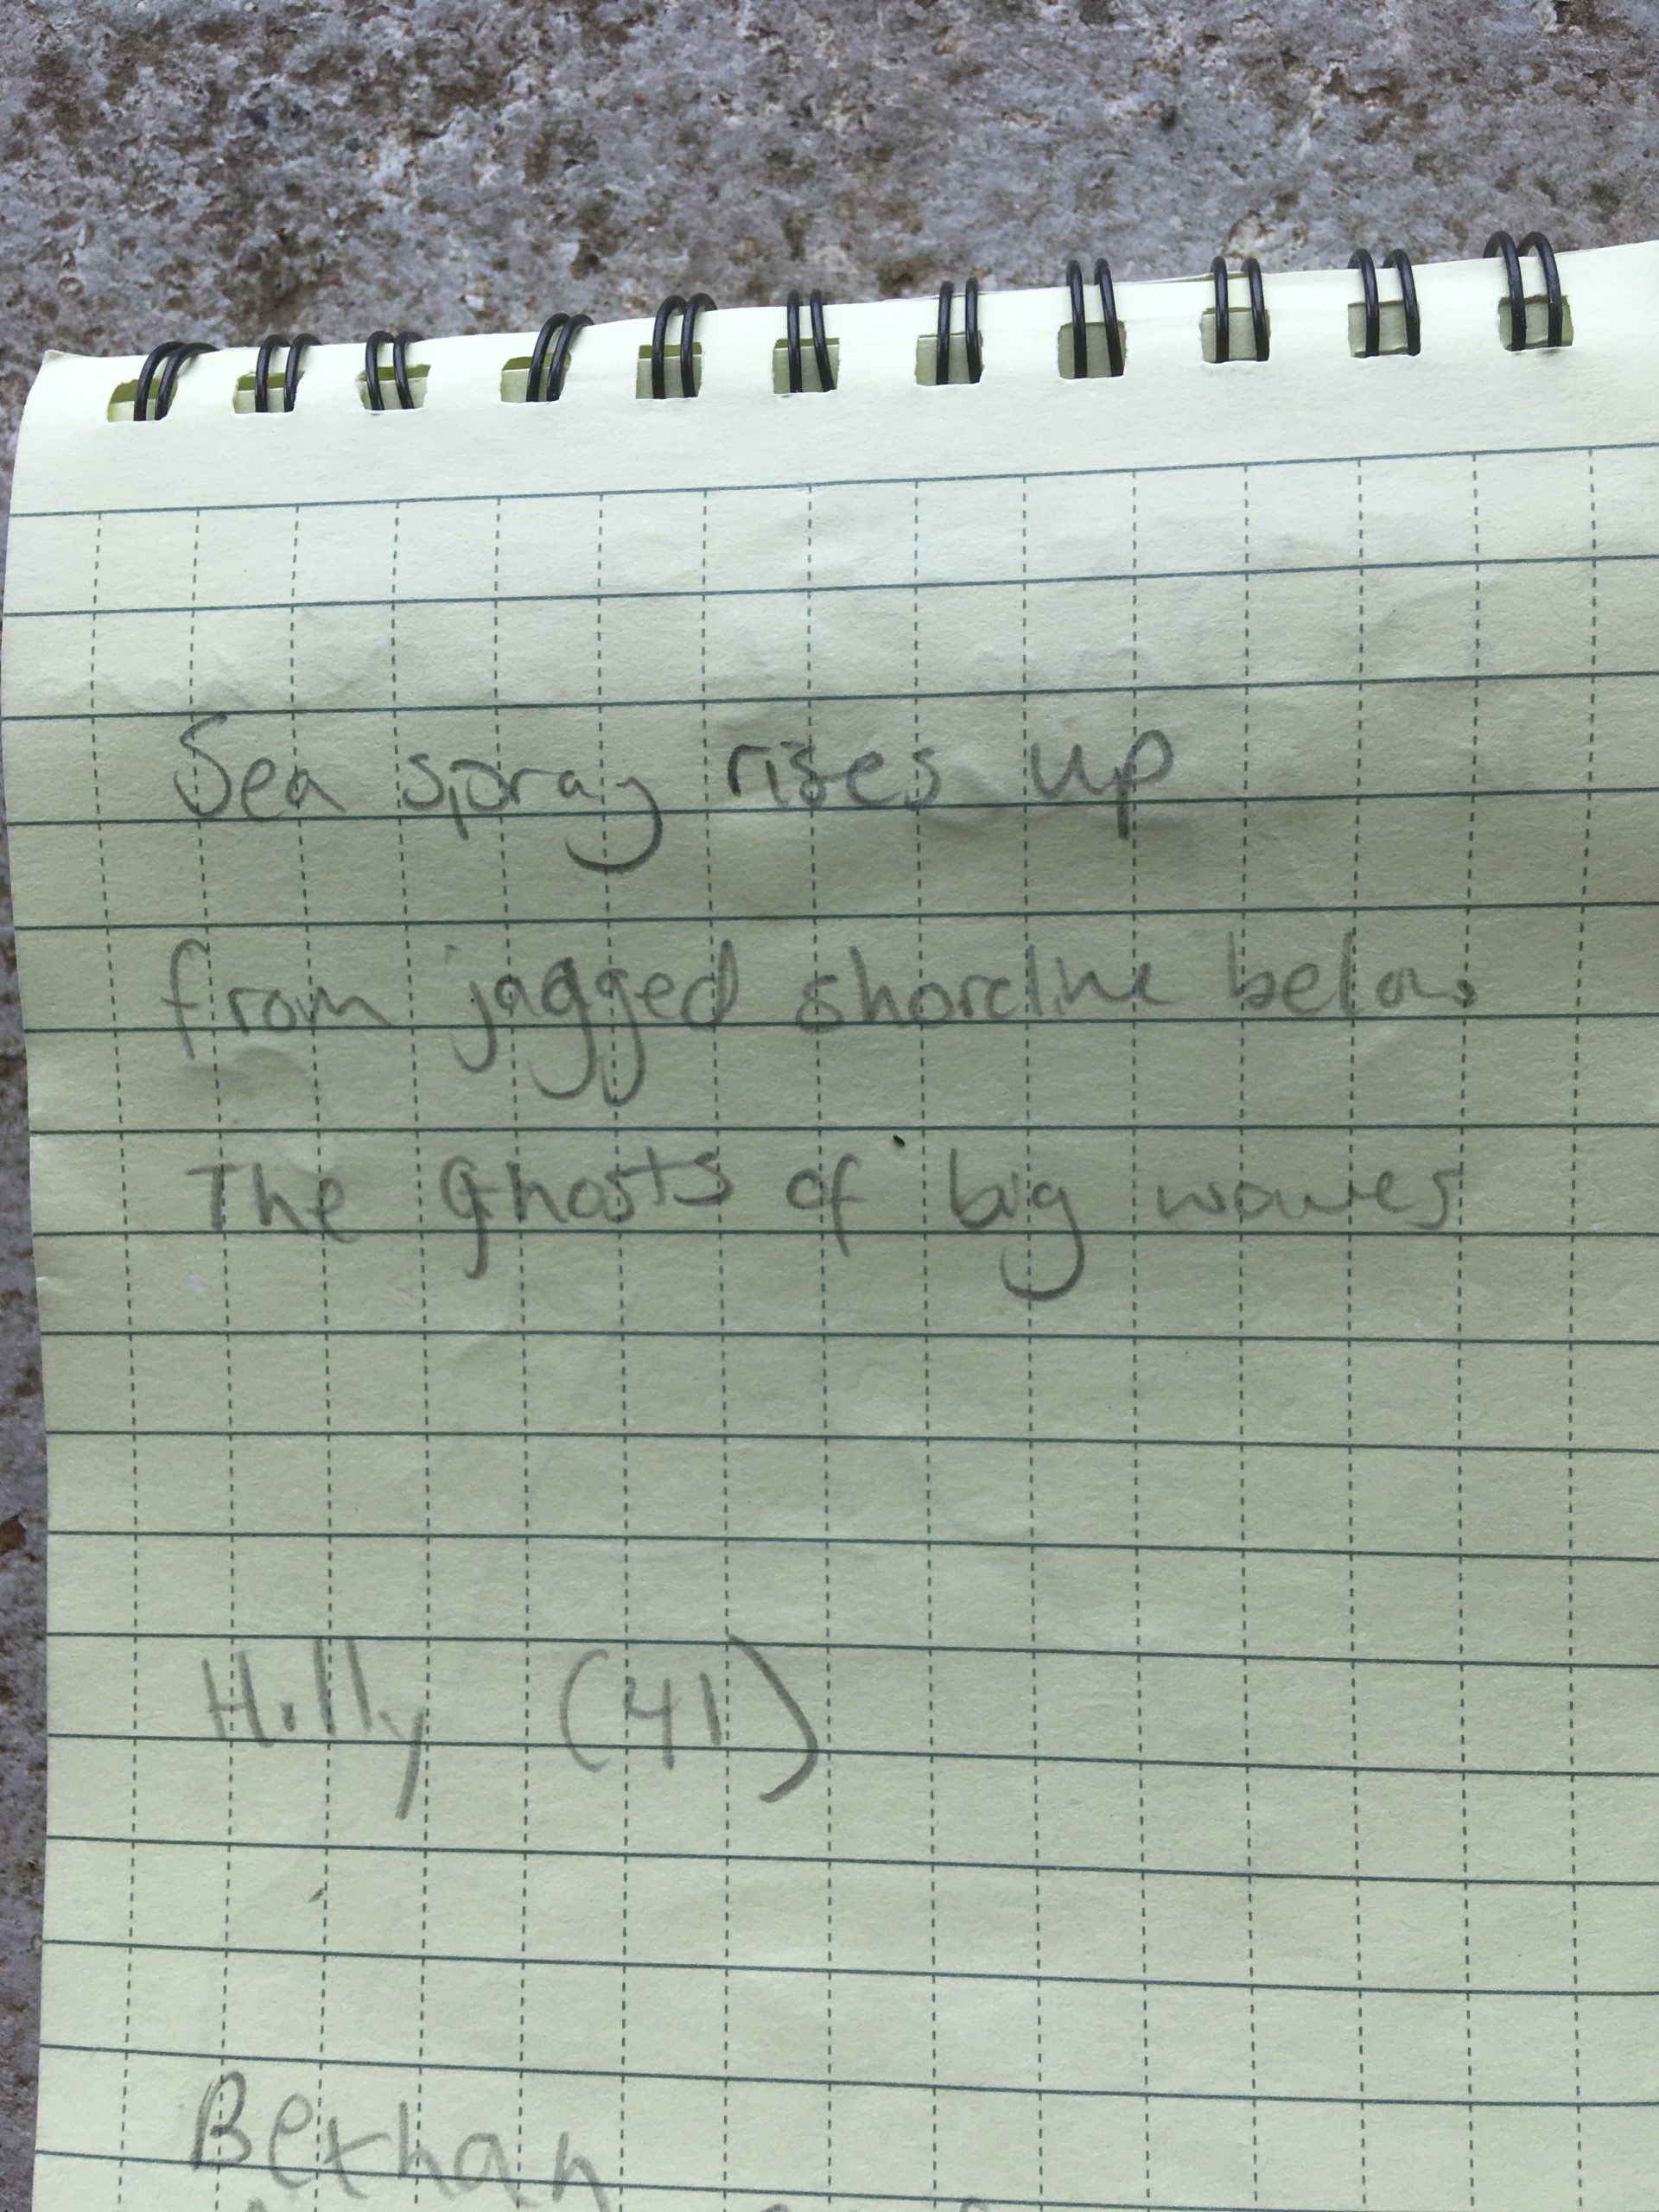 Sea spray rises up
from jagged shoreline below
The ghosts of big waves
Holly (41)
Bethan